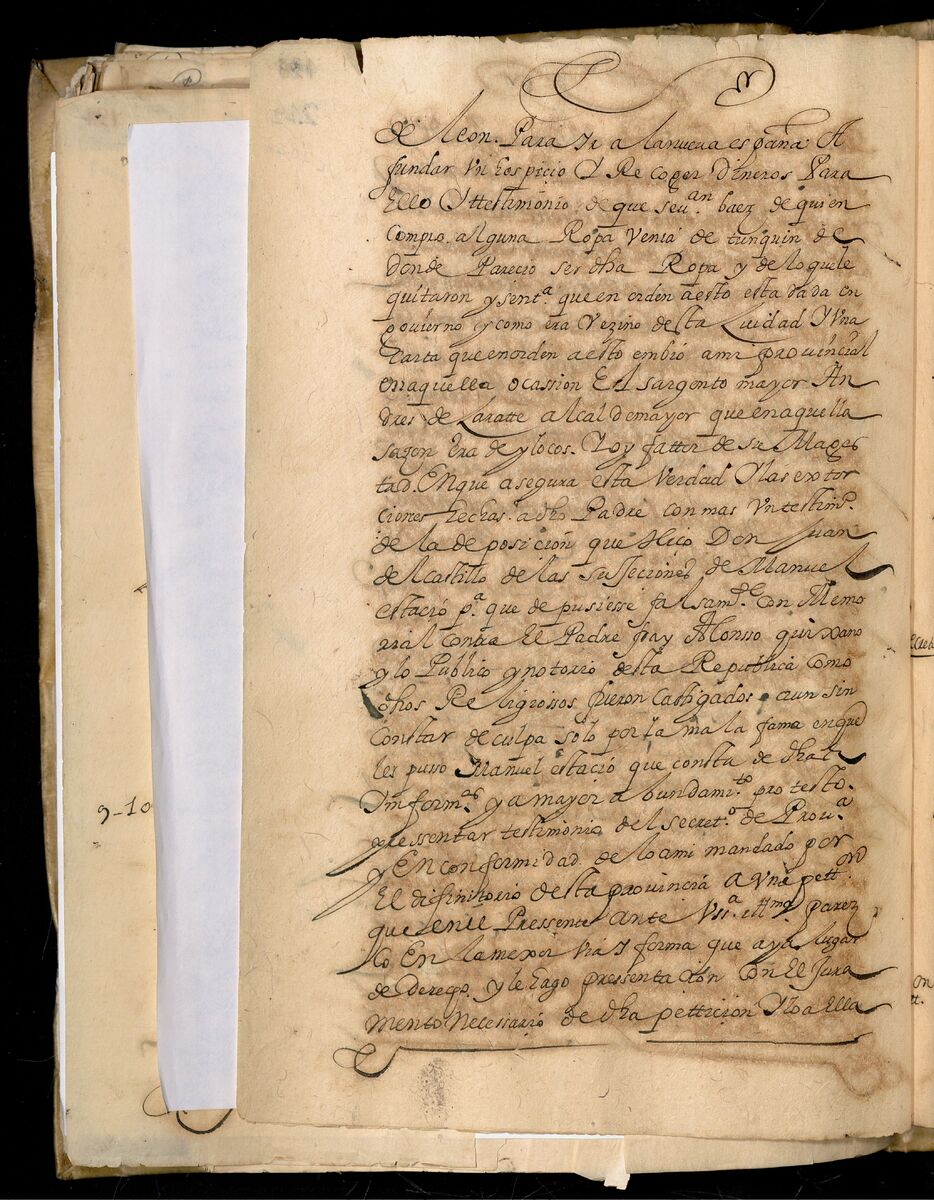 de leon. Para Yr a la nueva españa. A
fundar Vn hospicio Y Recoger Dineros Para
Ello Y testimonio de que seuan. baez de quien
Compro alguna Ropa Venia de tunquin de
Donde Parecio ser dha Ropa y de lo que le
quitaron y senta. que en orden a esto esta dada en
govierno y como era Vezino desta Ciudad Y Vna
Carta que en orden a esto embió a mi provincial
en aquella ocassion El sargento mayor An
dres de Zaratte alcalde mayor que en aquella
sazon Era de ylocos. Y oy fattor de su Mages
tad. En que asegura esta Verdad Y las extor
ciones hechas. a dho Padre con mas Vn testimo.
de la deposición que Hico Don Juan
del Castillo de las de Manuel
estació pa. que depusiesse falsamte. Con Memo
rial contra El Padre fray Alonsso quixano
y lo Publico y notorio desta Republica Como
dhos Religiossos fueron Castigados aun sin
Constar de culpa solo por la mala fama en que
les pusso Manuel estació que consta de dha
Ynforms. y a mayor abundamito. protesto.
pressentar testimonio del secreto. de Proua.
y En conformidad de lo a mi mandado por
El difinitorio desta provincia a Vna petton.
que en el Pressente ante Vsa. Illma. parez
co En la mexor Via y forma que aya lugar
de Derego. y le hago pressentaxión Con El Jura
mento Necessario de dha pettición Y a Ella
9-10